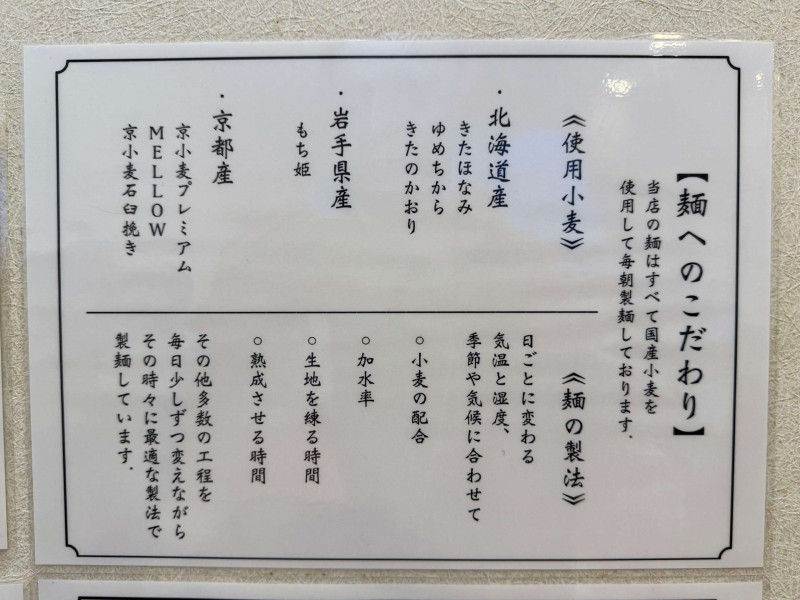 【麺へのこだわり】
当店の麺はすべて国産小麦を
使用して毎朝製麺しております.
《使用小麦》
・北海道産
きたほなみ
ゆめちから
きたのかおり
・岩手県産
もち姫
・京都産
京小麦プレミアム
MELLOW
京小麦石臼挽き
《麺の製法》
日ごとに変わる
気温と湿度、
季節や気候に合わせて
○小麦の配合
○加水率
○生地を練る時間
○熟成させる時間
その他多数の工程を
毎日少しずつ変えながら
その時々に最適な製法で
製麺しています.